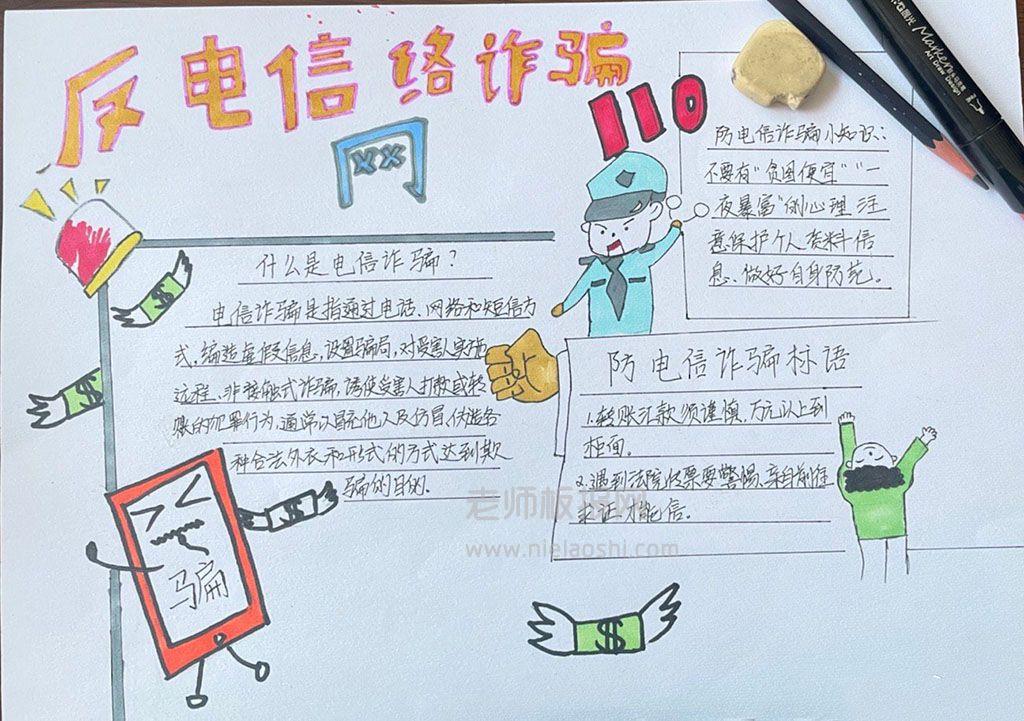 反电信络诈骗
网
110
防电信诈骗小知识:
不要有"贪图便宜""一
夜暴富"的心理注
意保护个人资料信
息、做好自身防范。
什么是电信诈骗?
电信诈骗是指通过电话、网络和短信方
式,编造虚假信息,设置骗局,对受害人实施
远程、非接触式诈骗,诱使受害人打款或转
账的犯罪行为,通常以冒充他人及仿冒、伪造各
种合法外衣和形式的方式达到欺
骗的目的.
防电信诈骗标语
1.转账汇款须谨慎,万元以上到
柜面。
2.遇到法院传票要警惕、亲自前往
求证才能信。
骗
$
$
$
$
老师板报网
www.nielaoshi.com
Marker
Art Draw Design